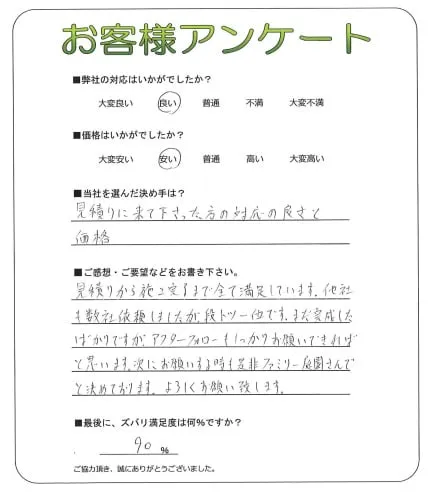 お客様アンケート
■弊社の対応はいかがでしたか？
大変良い　良い　普通　不満　大変不満
■価格はいかがでしたか？
大変安い　安い　普通　高い　大変高い
■当社を選んだ決め手は？
見積りに来て下さった方の対応の良さと
価格
■ご感想・ご要望などをお書き下さい。
見積りから施工完了まで全て満足しています。他社
も数社依頼しましたが、段トツ一位です。まだ完成した
ばかりですが、アフターフォローもしっかりお願いできれば
と思います。次にお願いする時も是非ファミリー庭園さんで
と決めております。よろしくお願い致します。
■最後に、ズバリ満足度は何%ですか？
90 %
ご協力頂き、誠にありがとうございました。